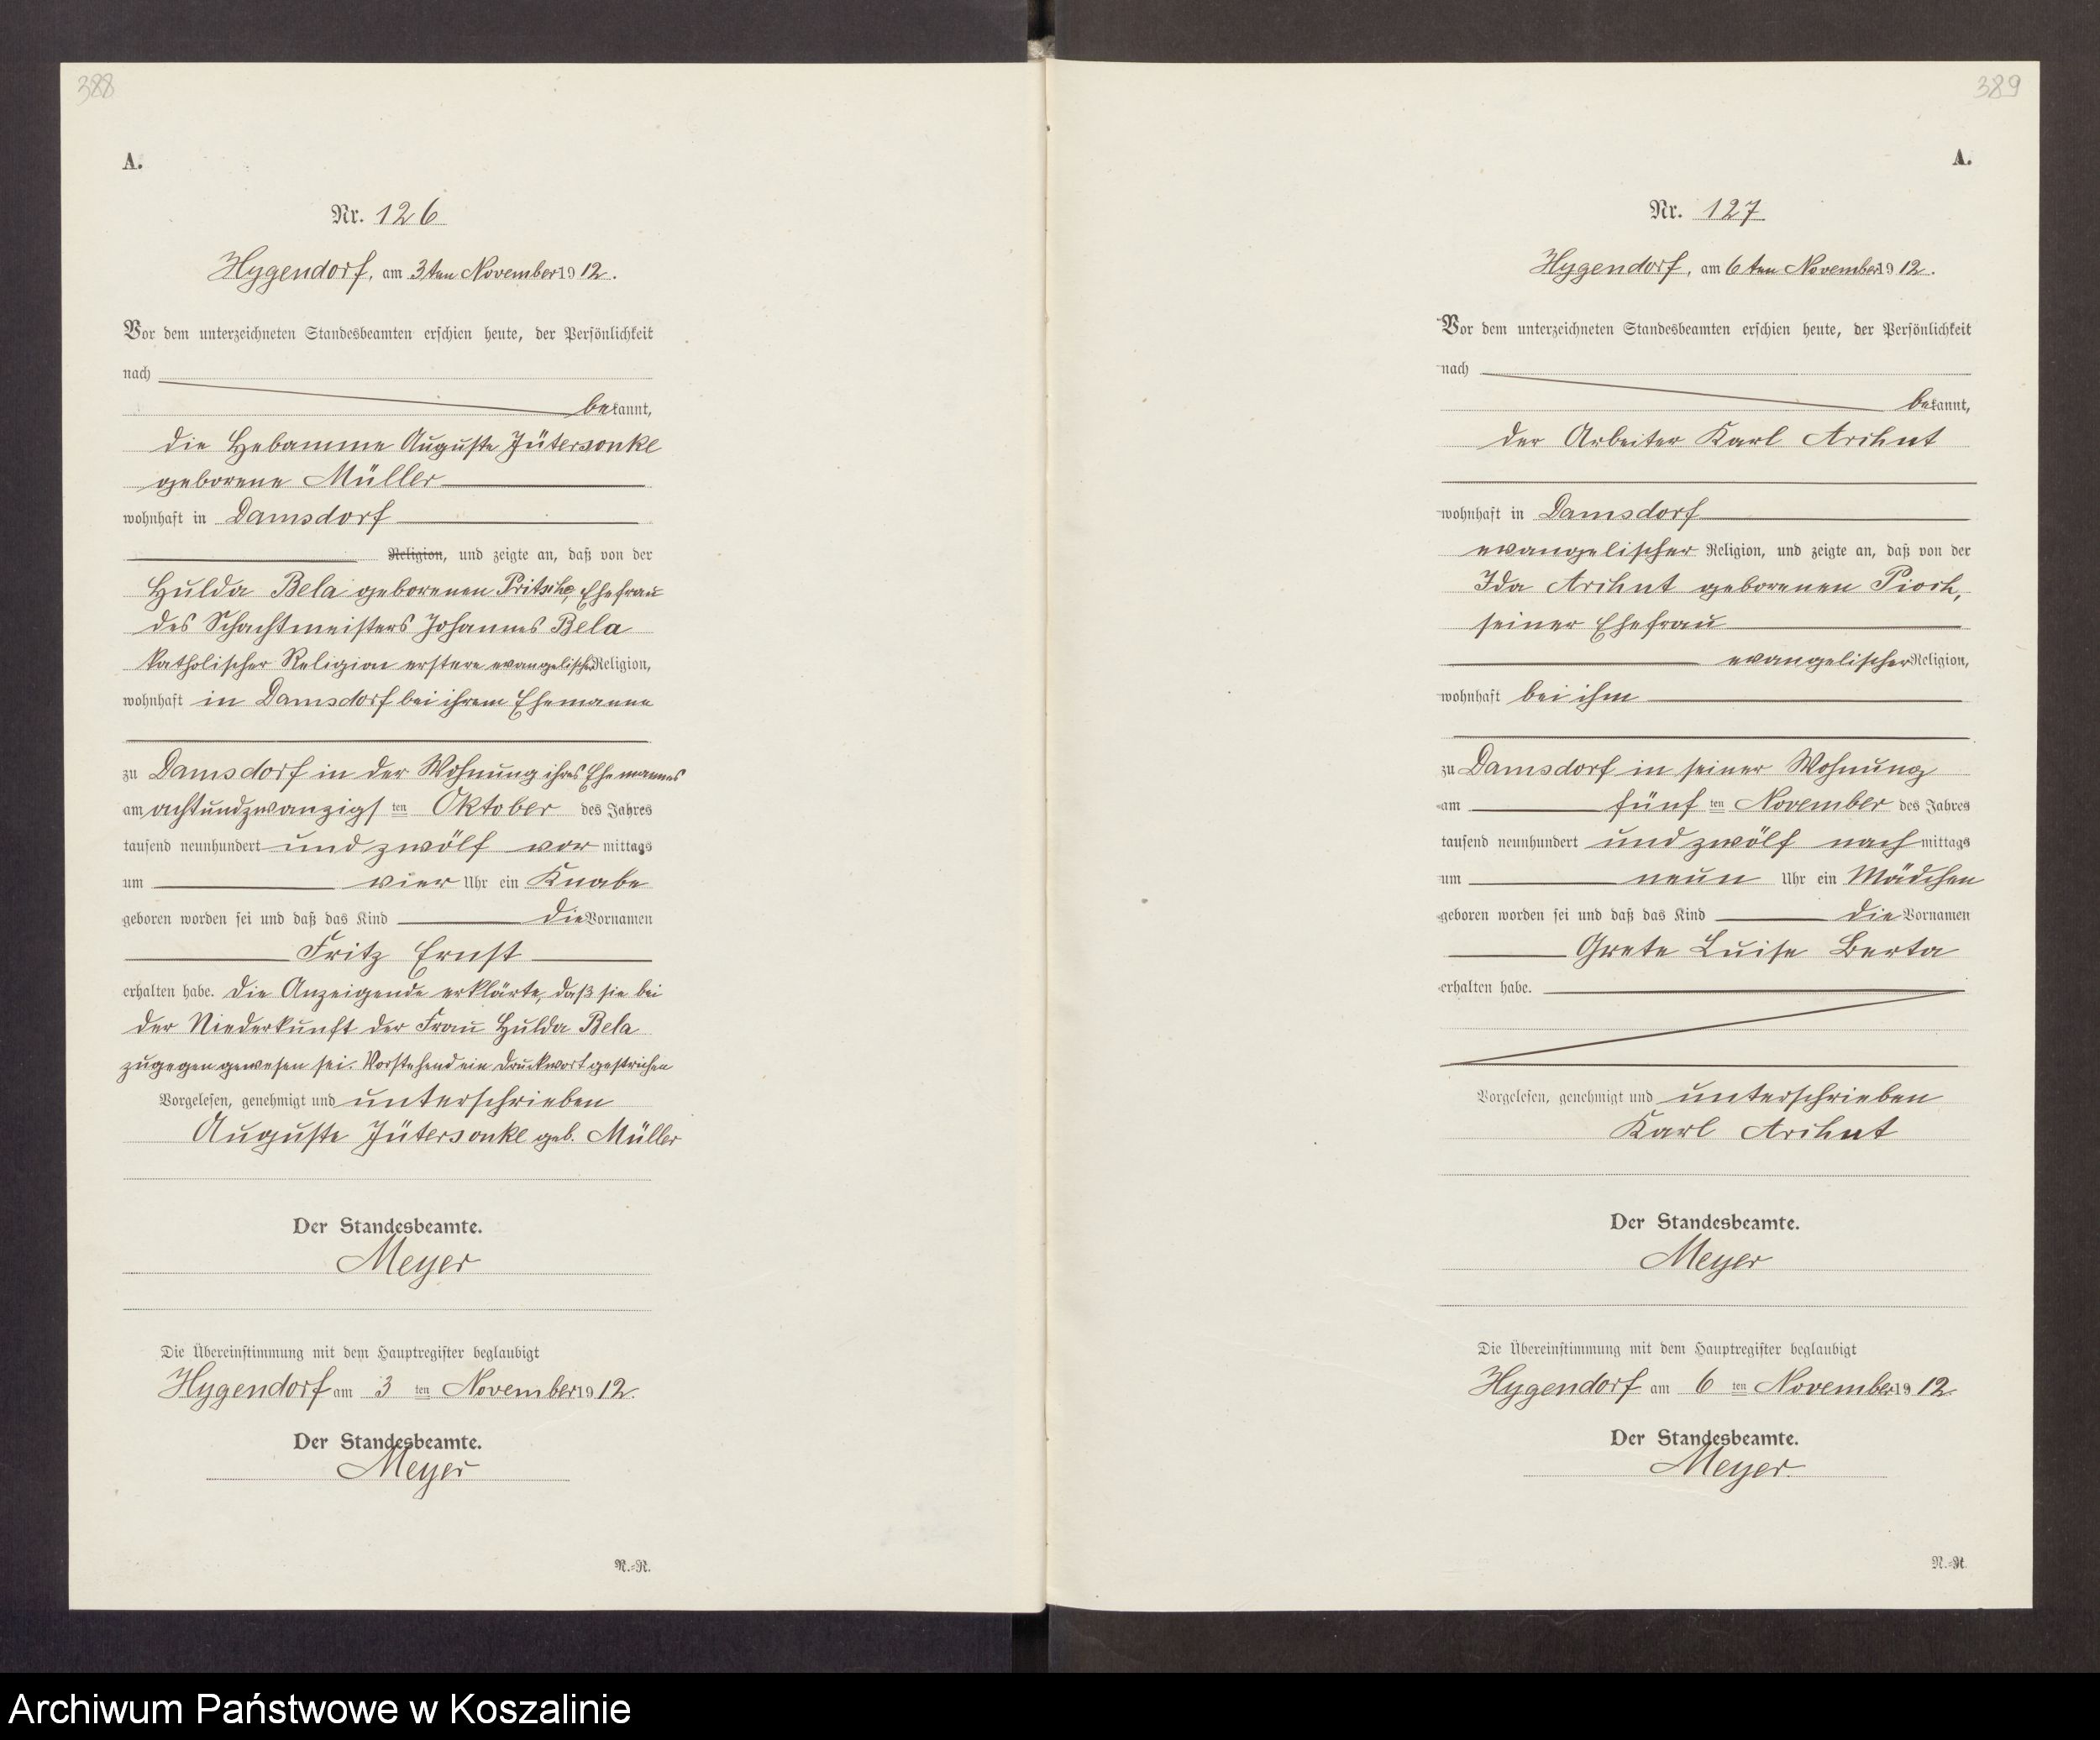 388
A.
Nr. 126
Hygendorf, am 3ten November 1912.
Vor dem unterzeichneten Standesbeamten erschien heute, der Persönlichkeit
nach
bekannt,
die Hebamme Auguste Jütersonke
geborene Müller
wohnhaft in Damsdorf
Religion, und zeigte an, daß von der
Hulda Bela geborenen Pritsche, Ehefrau
des Schachtmeisters Johannes Bela
katholischer Religion erstere evangelischer Religion,
wohnhaft in Damsdorf bei ihrem Ehemanne
zu Damsdorf in der Wohnung ihres Ehemannes
am achtundzwanzigsten Oktober des Jahres
tausend neunhundert und zwölf vormittags
um vier Uhr ein Knabe
geboren worden sei und daß das Kind die Vornamen
Fritz Ernst
erhalten habe. Die Anzeigende erklärte, daß sie bei
der Niederkunft der Frau Hulda Bela
zugegen gewesen sei. Vorstehend ein Druckwort gestrichen
Vorgelesen, genehmigt und unterschrieben
Auguste Jütersonke geb. Müller
Der Standesbeamte.
Meyer
Die Übereinstimmung mit dem Hauptregister beglaubigt
Hygendorf am 3ten November 1912.
Der Standesbeamte.
Meyer
N.=R.
389
A.
Nr. 127
Hygendorf, am 6ten November 1912.
Vor dem unterzeichneten Standesbeamten erschien heute, der Persönlichkeit
nach
bekannt,
der Arbeiter Karl Arihnt
wohnhaft in Damsdorf
evangelischer Religion, und zeigte an, daß von der
Ida Arihnt geborenen Pioch,
seiner Ehefrau
evangelischer Religion,
wohnhaft bei ihm
zu Damsdorf in seiner Wohnung
am fünften November des Jahres
tausend neunhundert und zwölf nachmittags
um neun Uhr ein Mädchen
geboren worden sei und daß das Kind die Vornamen
Grete Luise Berta
erhalten habe.
Vorgelesen, genehmigt und unterschrieben
Karl Arihnt
Der Standesbeamte.
Meyer
Die Übereinstimmung mit dem Hauptregister beglaubigt
Hygendorf am 6ten November 1912.
Der Standesbeamte.
Meyer.
N.=R.
Archiwum Państwowe w Koszalinie